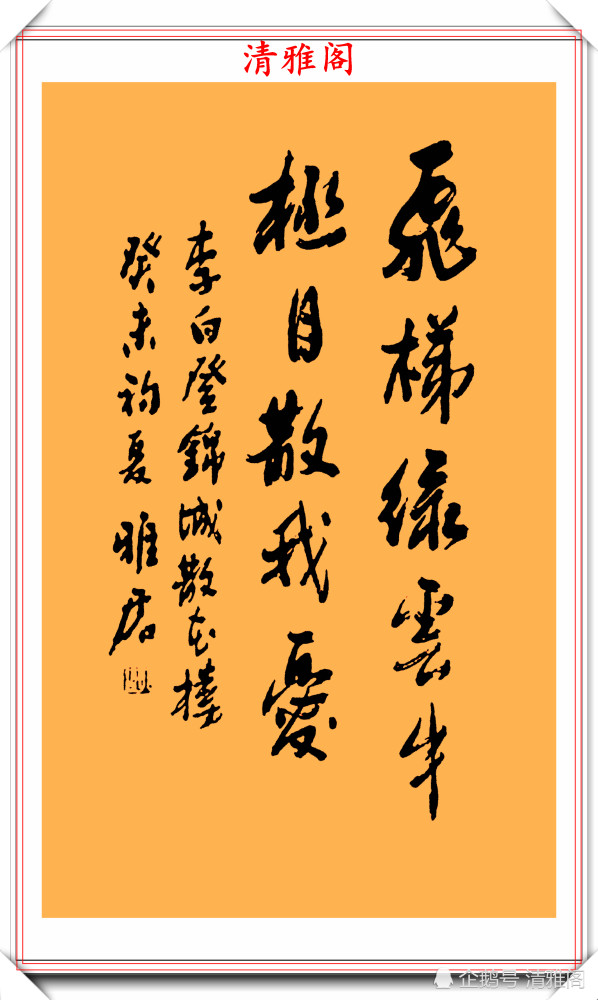 清雅阁
飛梯緑雲中
極目散我憂
李白登錦城散花樓
癸未初夏 雅君
企鹅号 清雅阁